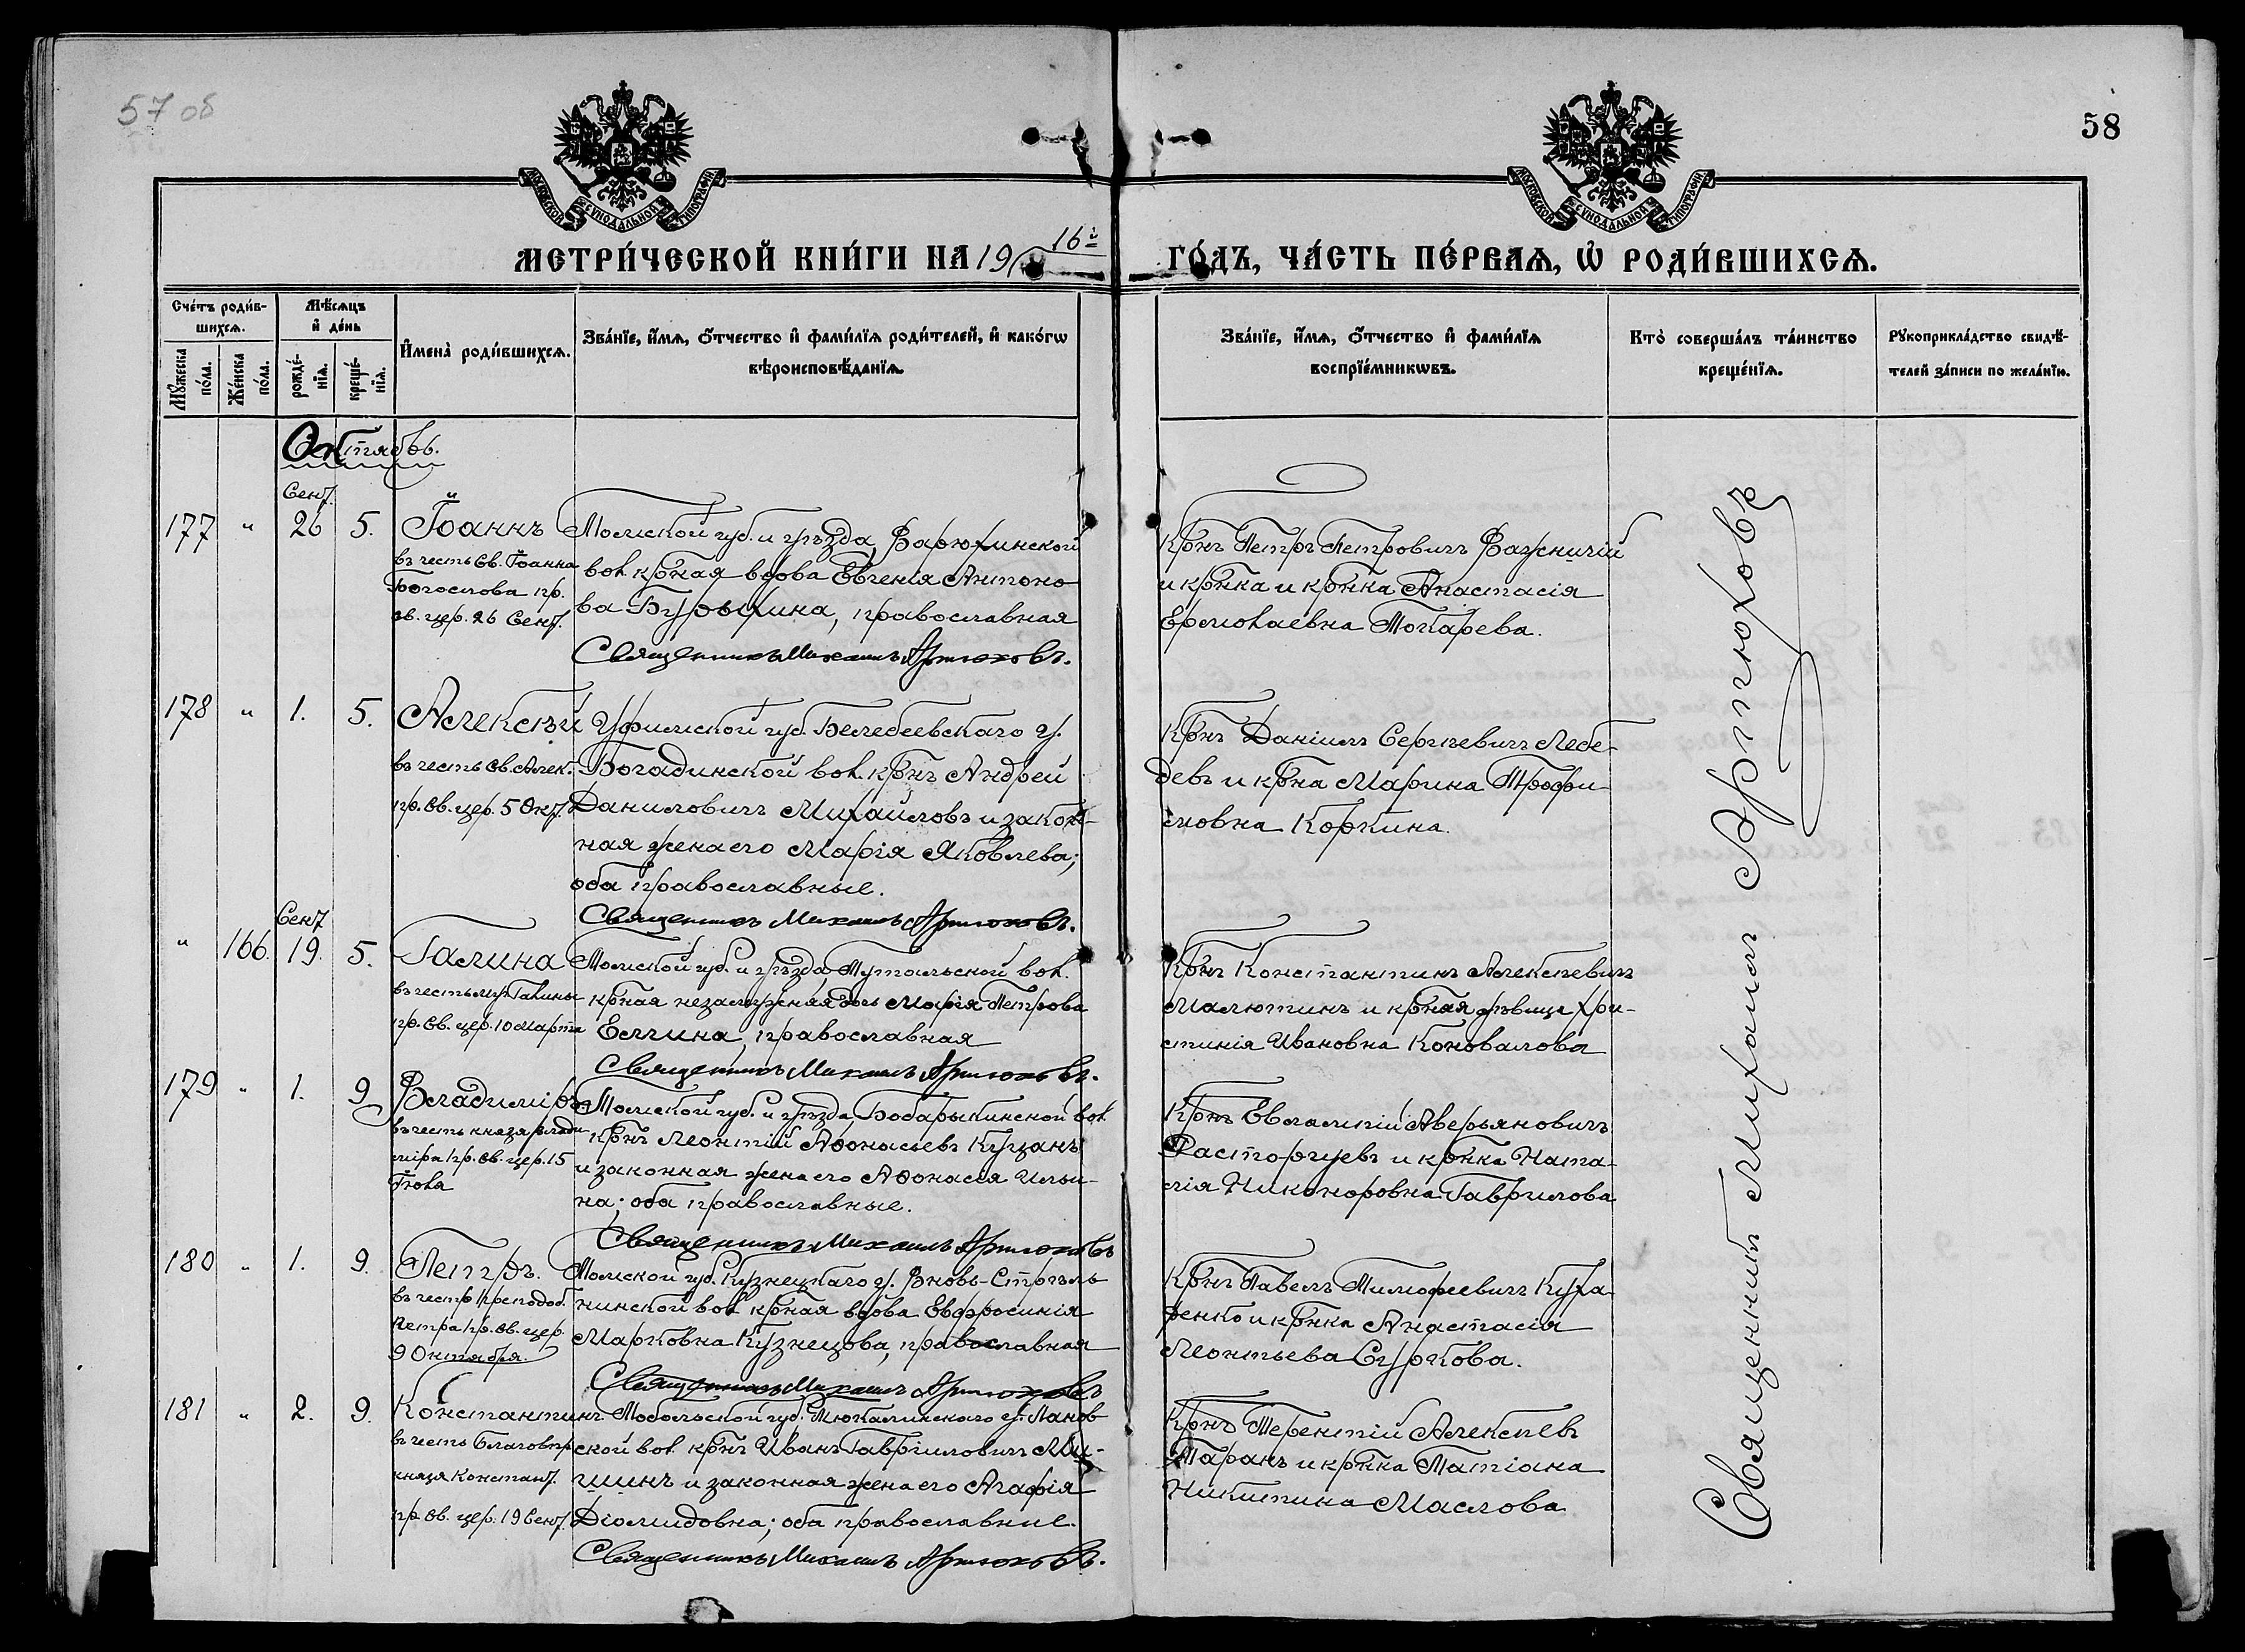 57 об
58
МОСКОВСКОЙ СѴНОДАЛЬНОЙ ТИПОГРАФІИ
МОСКОВСКОЙ СѴНОДАЛЬНОЙ ТИПОГРАФІИ
МЕТРИ́ЧЕСКОЙ КНИ́ГИ НА 1916й
ГО́ДЪ, ЧА́СТЬ ПЕ́РВАЯ, Ѡ РОДИ́ВШИХСЯ.
Сче́тъ роди́в-
шихся.
Мѣ́сяцъ
и҆ де́нь
Му́жеска по́ла.
Же́нска по́ла.
рожде́-
нїя.
креще́-
нїя.
И҆мена̀ роди́вшихся.
Зва́нїе, и҆́мя, о҆́тчество и҆ фами́лїя роди́телей, и҆ како́гѡ
вѣроисповѣ́данїя.
Зва́нїе, и҆́мя, о҆́тчество и҆ фами́лїя
воспрїе́мникѡвъ.
Кто̀ соверша́лъ та́инство
креще́нїя.
Рꙋкоприкла́дство свидѣ́-
телей за́писи по жела́нїю.
Октябрь.
Сент.
177 " 26 5. Іоаннъ
въ честь Св. Іоанна
Богослова пр.
св. цер. 26 Сент.
Томской губ. и уѣзда, Варюхинской
вол. крѣная вдова Евгенія Антоно
ва Бурыхина, православная
Священникъ Михаилъ Артюховъ.
Крнъ Петръ Петровичъ
и крнка и крнка Анастасія
Ермолаевна Токарева.
178 " 1. 5. Алексѣй
въ честь Св. Алек.
пр. Св. цер. 5 Окт.
Уфимской губ. Белебеевскаго у.
Богадинской вол. крнъ Андрей
Даниловичъ Михайловъ и закон-
ная жена его Марія Яковлева;
оба православные.
Священникъ Михаилъ Артюховъ.
Крнъ Даніилъ Сергѣевичъ Лебе-
девъ и крна Марина Трофи-
мовна Коркина.
Сент
" 166. 19. 5. Галина
въ честь муч. Галины
пр. Св. цер. 10 Марта
Томской губ. и уѣзда Тутальской вол.
крная незамужняя дочь Марія Петрова
Еллина, православная
Священникъ Михаилъ Артюховъ.
Крнъ Константинъ Алексѣевичъ
Малютинъ и крная дѣвица Хри-
стинія Ивановна Коновалова
179 " 1. 9 Владиміръ
въ честь князя Влади
міра пр. Св. цер. 15
Іюля
Томской губ. и уѣзда, Бобарыкинской вол.
крнъ Леонтій Аѳонасьевъ Куцанъ
и законная жена его Аѳонасія Ильи-
на; оба православные.
Священникъ Михаилъ Артюховъ
Крнъ Евлампій Аверьяновичъ
Расторгуевъ и крнка Ната-
лія Никоноровна Гаврилова
180 " 1. 9. Петръ.
въ честь преподоб.
Петра пр. Св. цер.
9 Октября.
Томской губ. Кузнецкаго у. Вновь-Стрѣль
нинской вол. крная вдова Евфросинія
Марковна Кузнецова, православная
Священникъ Михаилъ Артюховъ
Крнъ Павелъ Тимофеевичъ Куха
ренко и крнка Анастасія
Леонтьева Суркова.
181 " 2. 9. Константинъ
въ честь Благовѣр.
князя Констант.
пр. Св. цер. 19 Сент.
Тобольской губ. Тюкалинскаго у. Панов
ской вол. крнъ Иванъ Гавріиловичъ Ми-
шинъ и законная жена его Агафія
Діомидовна; оба православные.
Священникъ Михаилъ Артюховъ.
Крнъ Терентій Алексѣевъ
Таранъ и крнка Татіана
Никитина Маслова
Священникъ Михаилъ Артюховъ